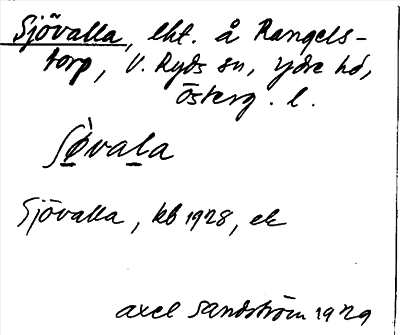 Sjövalla, lht. å Rangels-
torp, V. Ryds sn, Ydre hd,
Österg. l.
Sjövalla, kb 1928, ek
Axel Sandström 1929